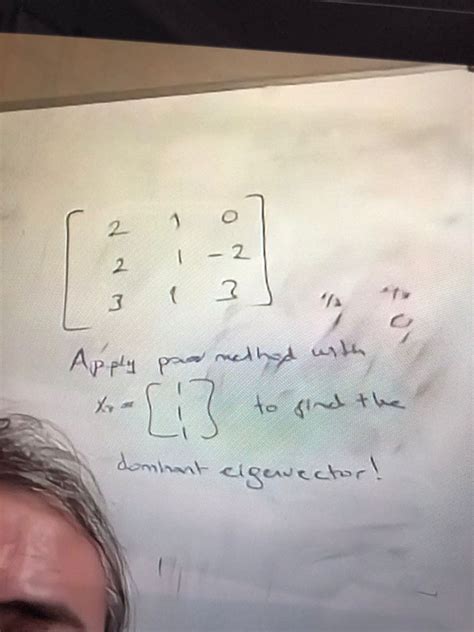 2 1 0
2 1 -2
3 1 3
Apply power method with
X₀ = [1 1 1] to find the
dominant eigenvector!